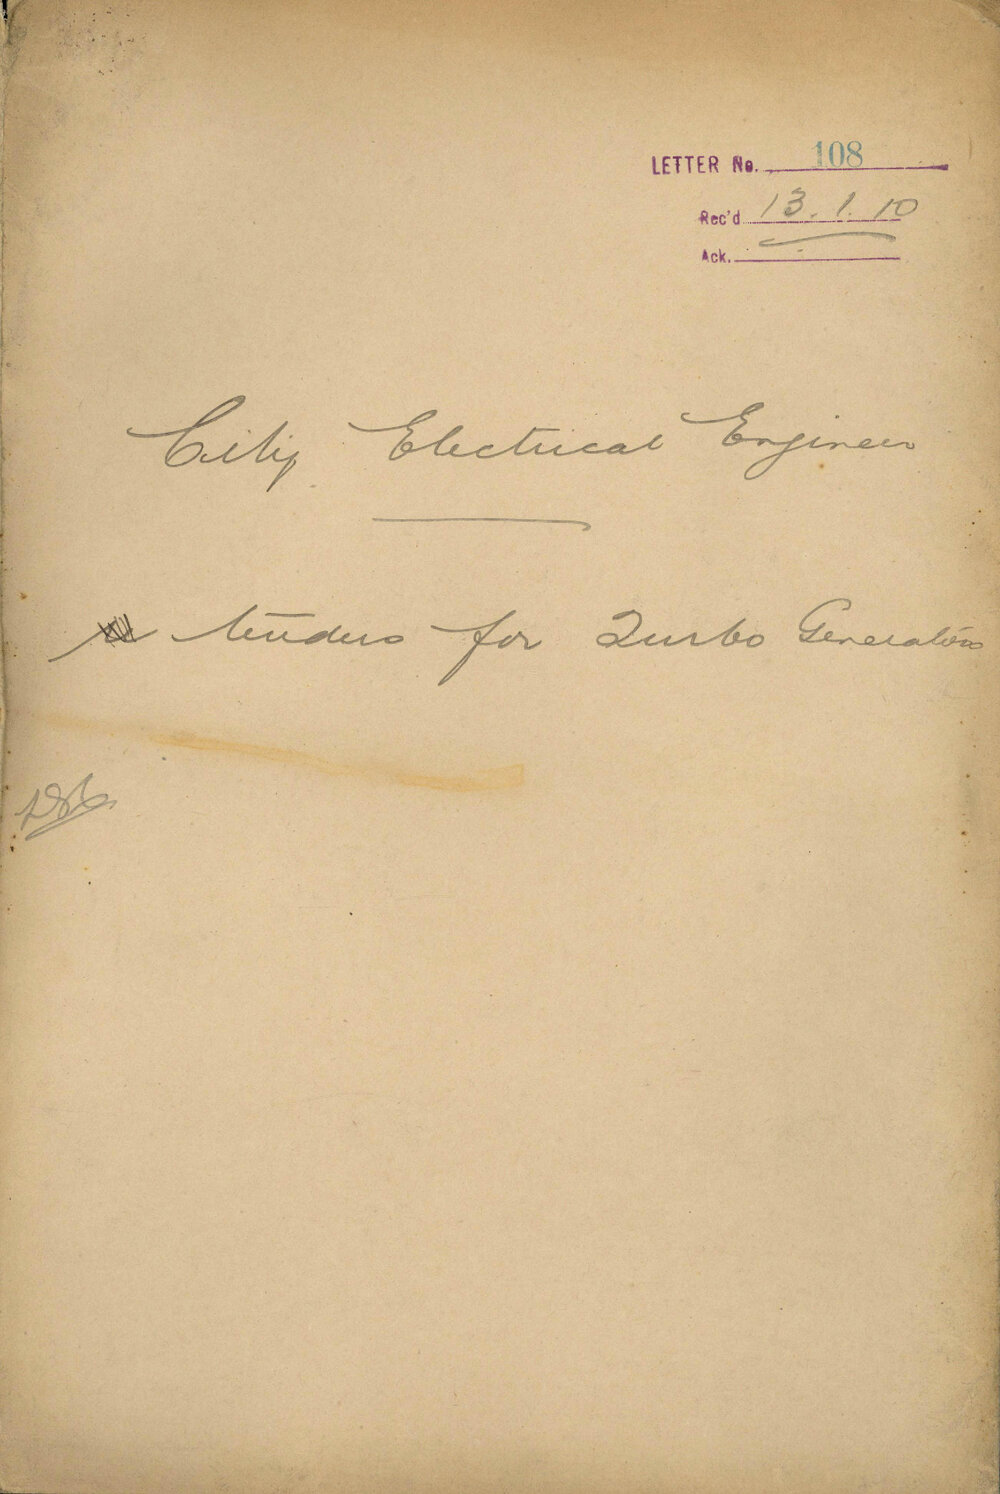 LETTER No. 108
Rec'd 13.1.10
Ack.
City Electrical Engineer
tenders for Turbo Generators